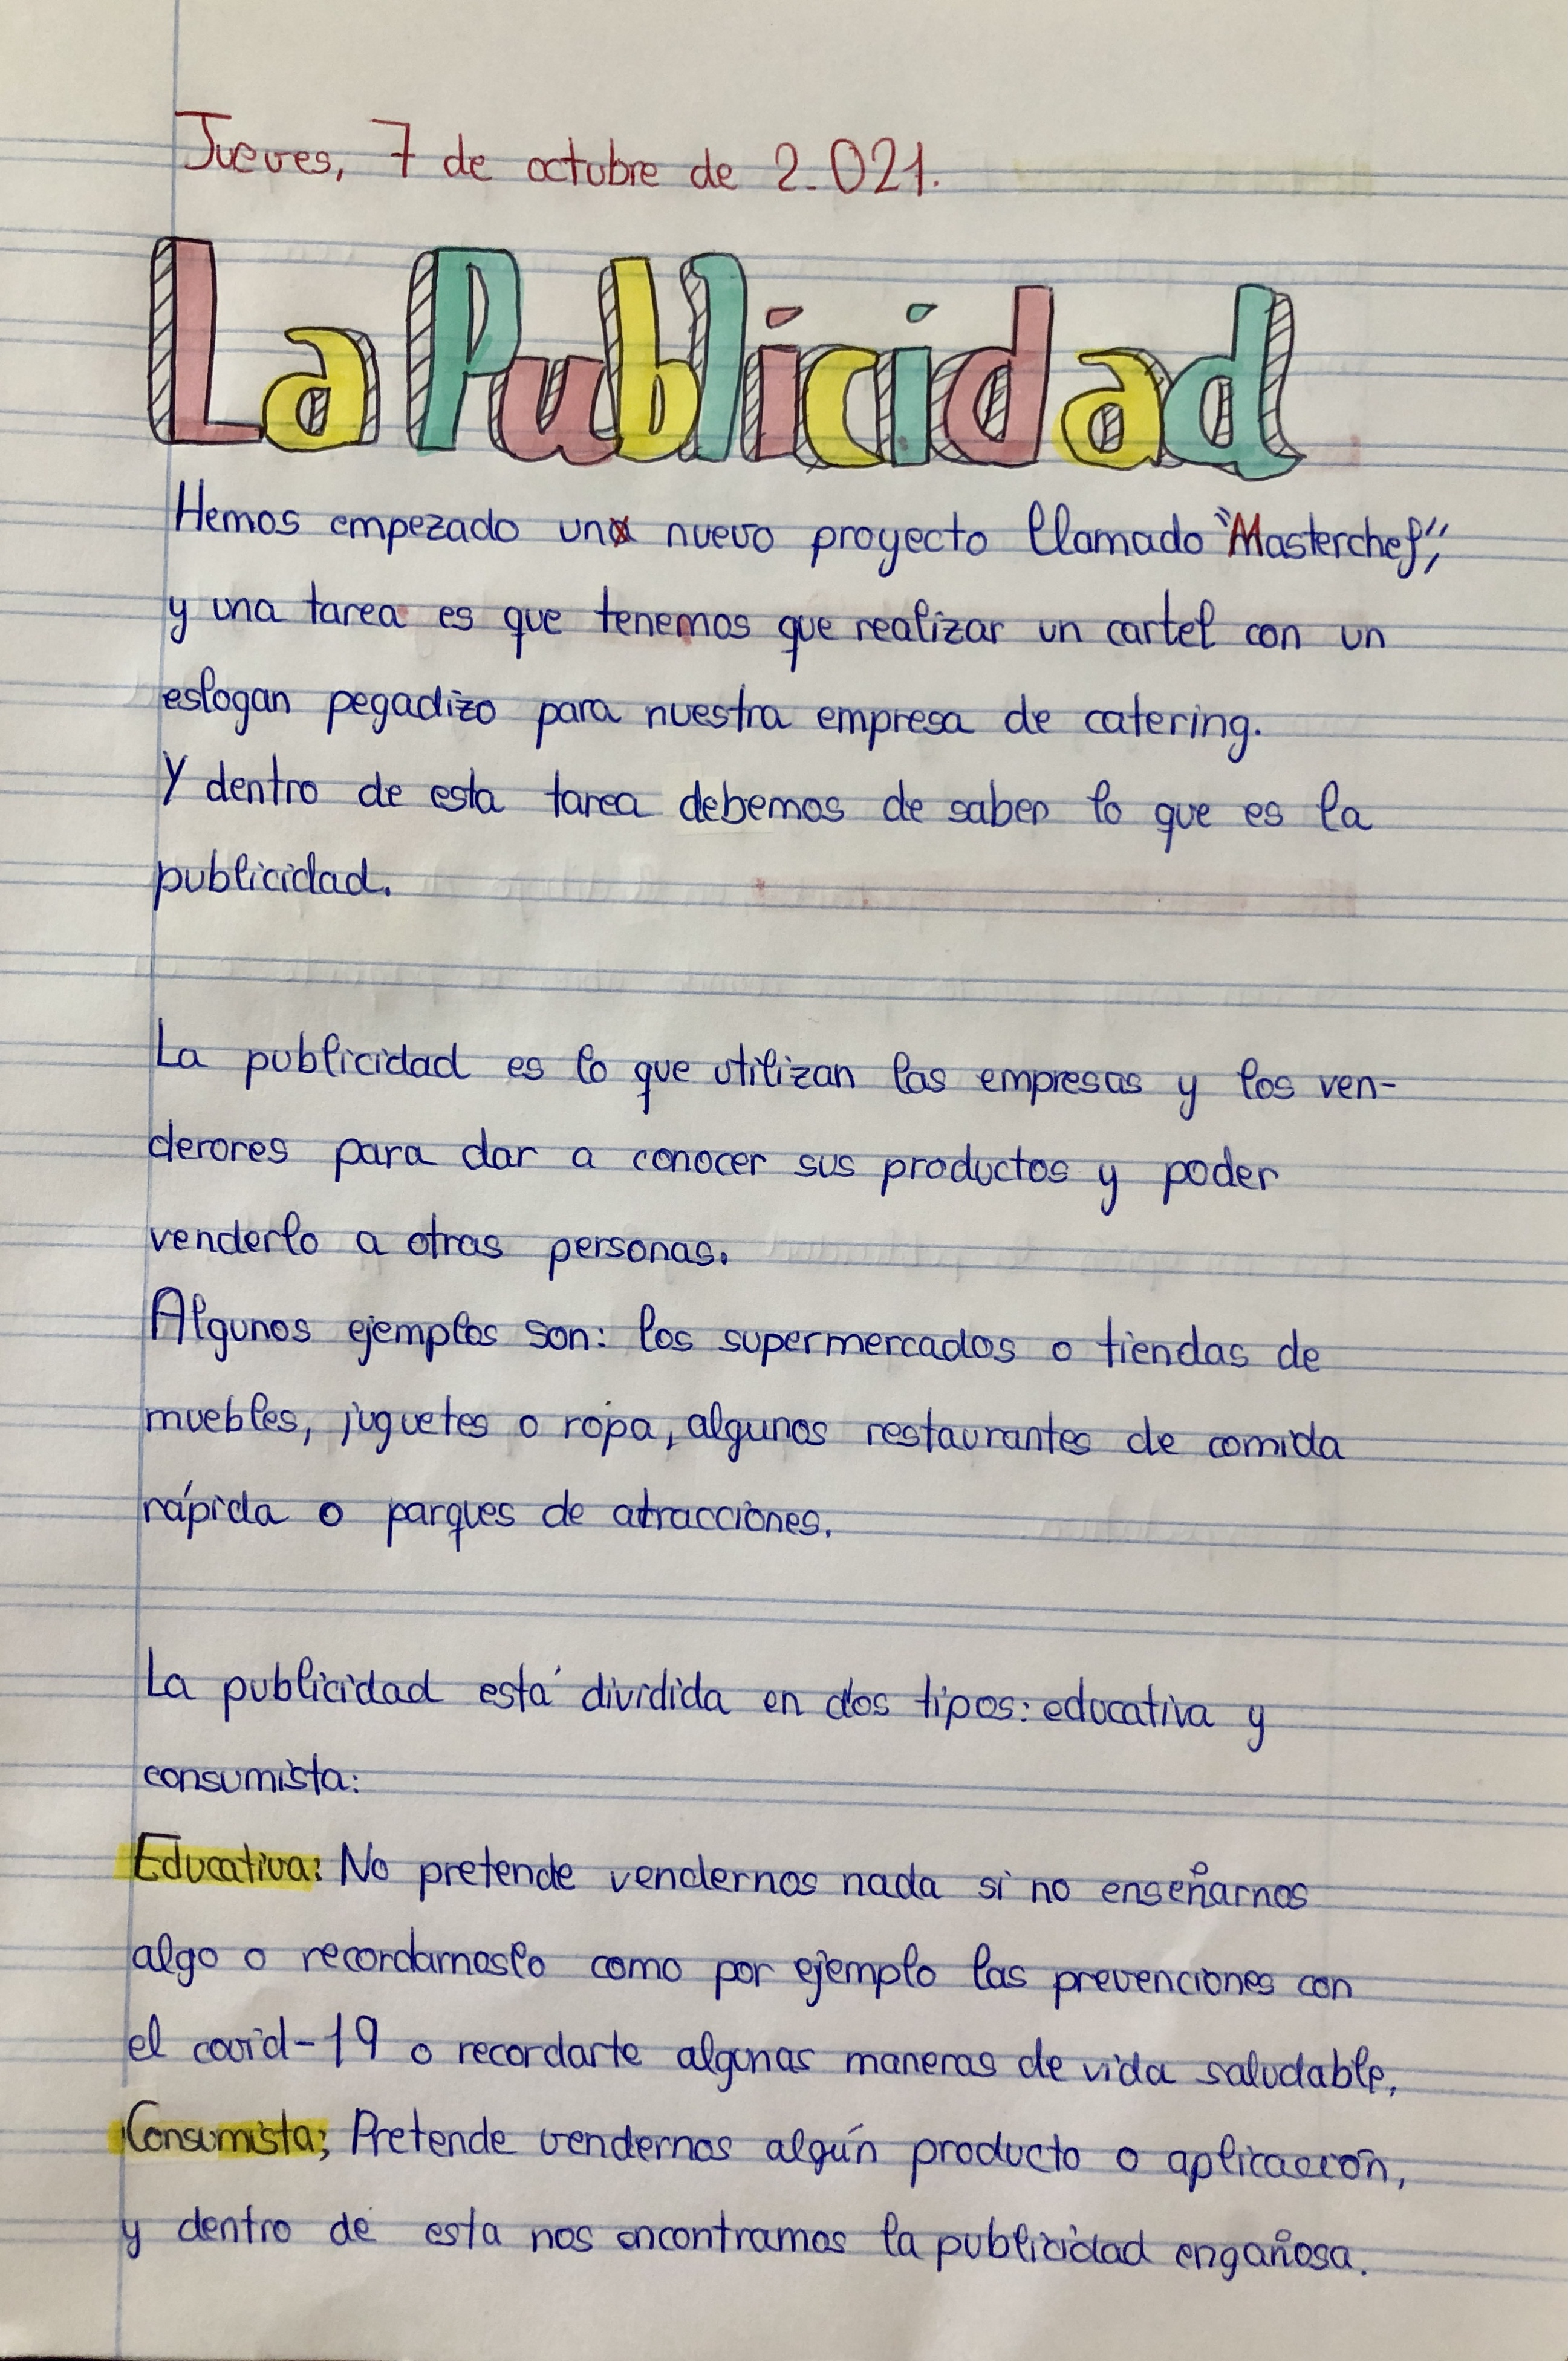 Jueves, 7 de octubre de 2.021.
La Publicidad
Hemos empezado un nuevo proyecto llamado "Masterchef",
y una tarea es que tenemos que realizar un cartel con un
eslogan pegadizo para nuestra empresa de catering.
Y dentro de esta tarea debemos de saber lo que es la
publicidad.
La publicidad es lo que utilizan las empresas y los ven-
derores para dar a conocer sus productos y poder
venderlo a otras personas.
Algunos ejemplos son: los supermercados o tiendas de
muebles, juguetes o ropa, algunos restaurantes de comida
rápida o parques de atracciones.
La publicidad está dividida en dos tipos: educativa y
consumista:
Educativa: No pretende vendernos nada si no enseñarnos
algo o recordarnoslo como por ejemplo las prevenciones con
el covid-19 o recordarte algunas maneras de vida saludable.
Consumista; Pretende vendernos algún producto o aplicación,
y dentro de esta nos encontramos la publicidad engañosa.